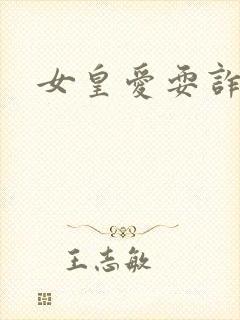 女皇愛耍詐
王志敏